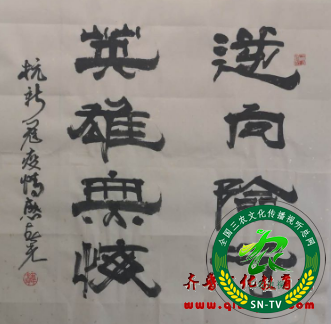 逆向險
英雄無悔
抗新冠疫情
全国三农文化传播视听总网
SN-TV
齐鲁 化教育